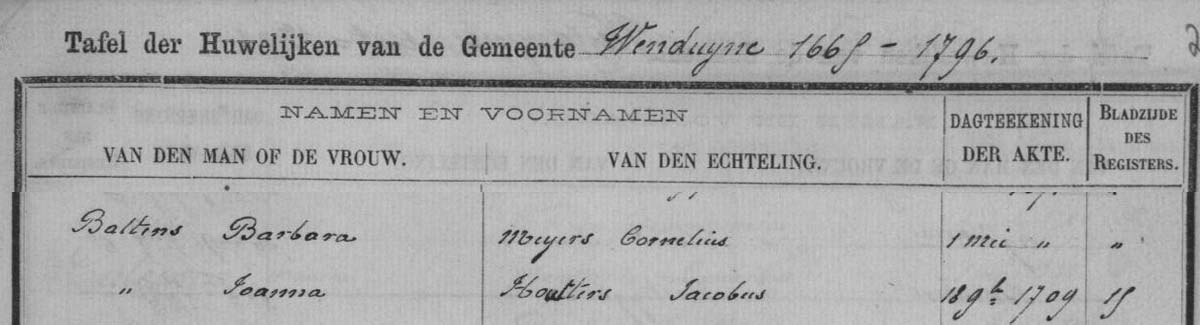 Tafel der Huwelijken van de Gemeente Wenduyne 1665 - 1796. 2
NAMEN EN VOORNAMEN DAGTEEKENING DER AKTE. BLADZIJDE DES REGISTERS.
VAN DEN MAN OF DE VROUW. VAN DEN ECHTELING.
Baltens Barbara Meyers Cornelius 1 Mei " "
" Joanna Houtters Jacobus 18 9b 1709 15